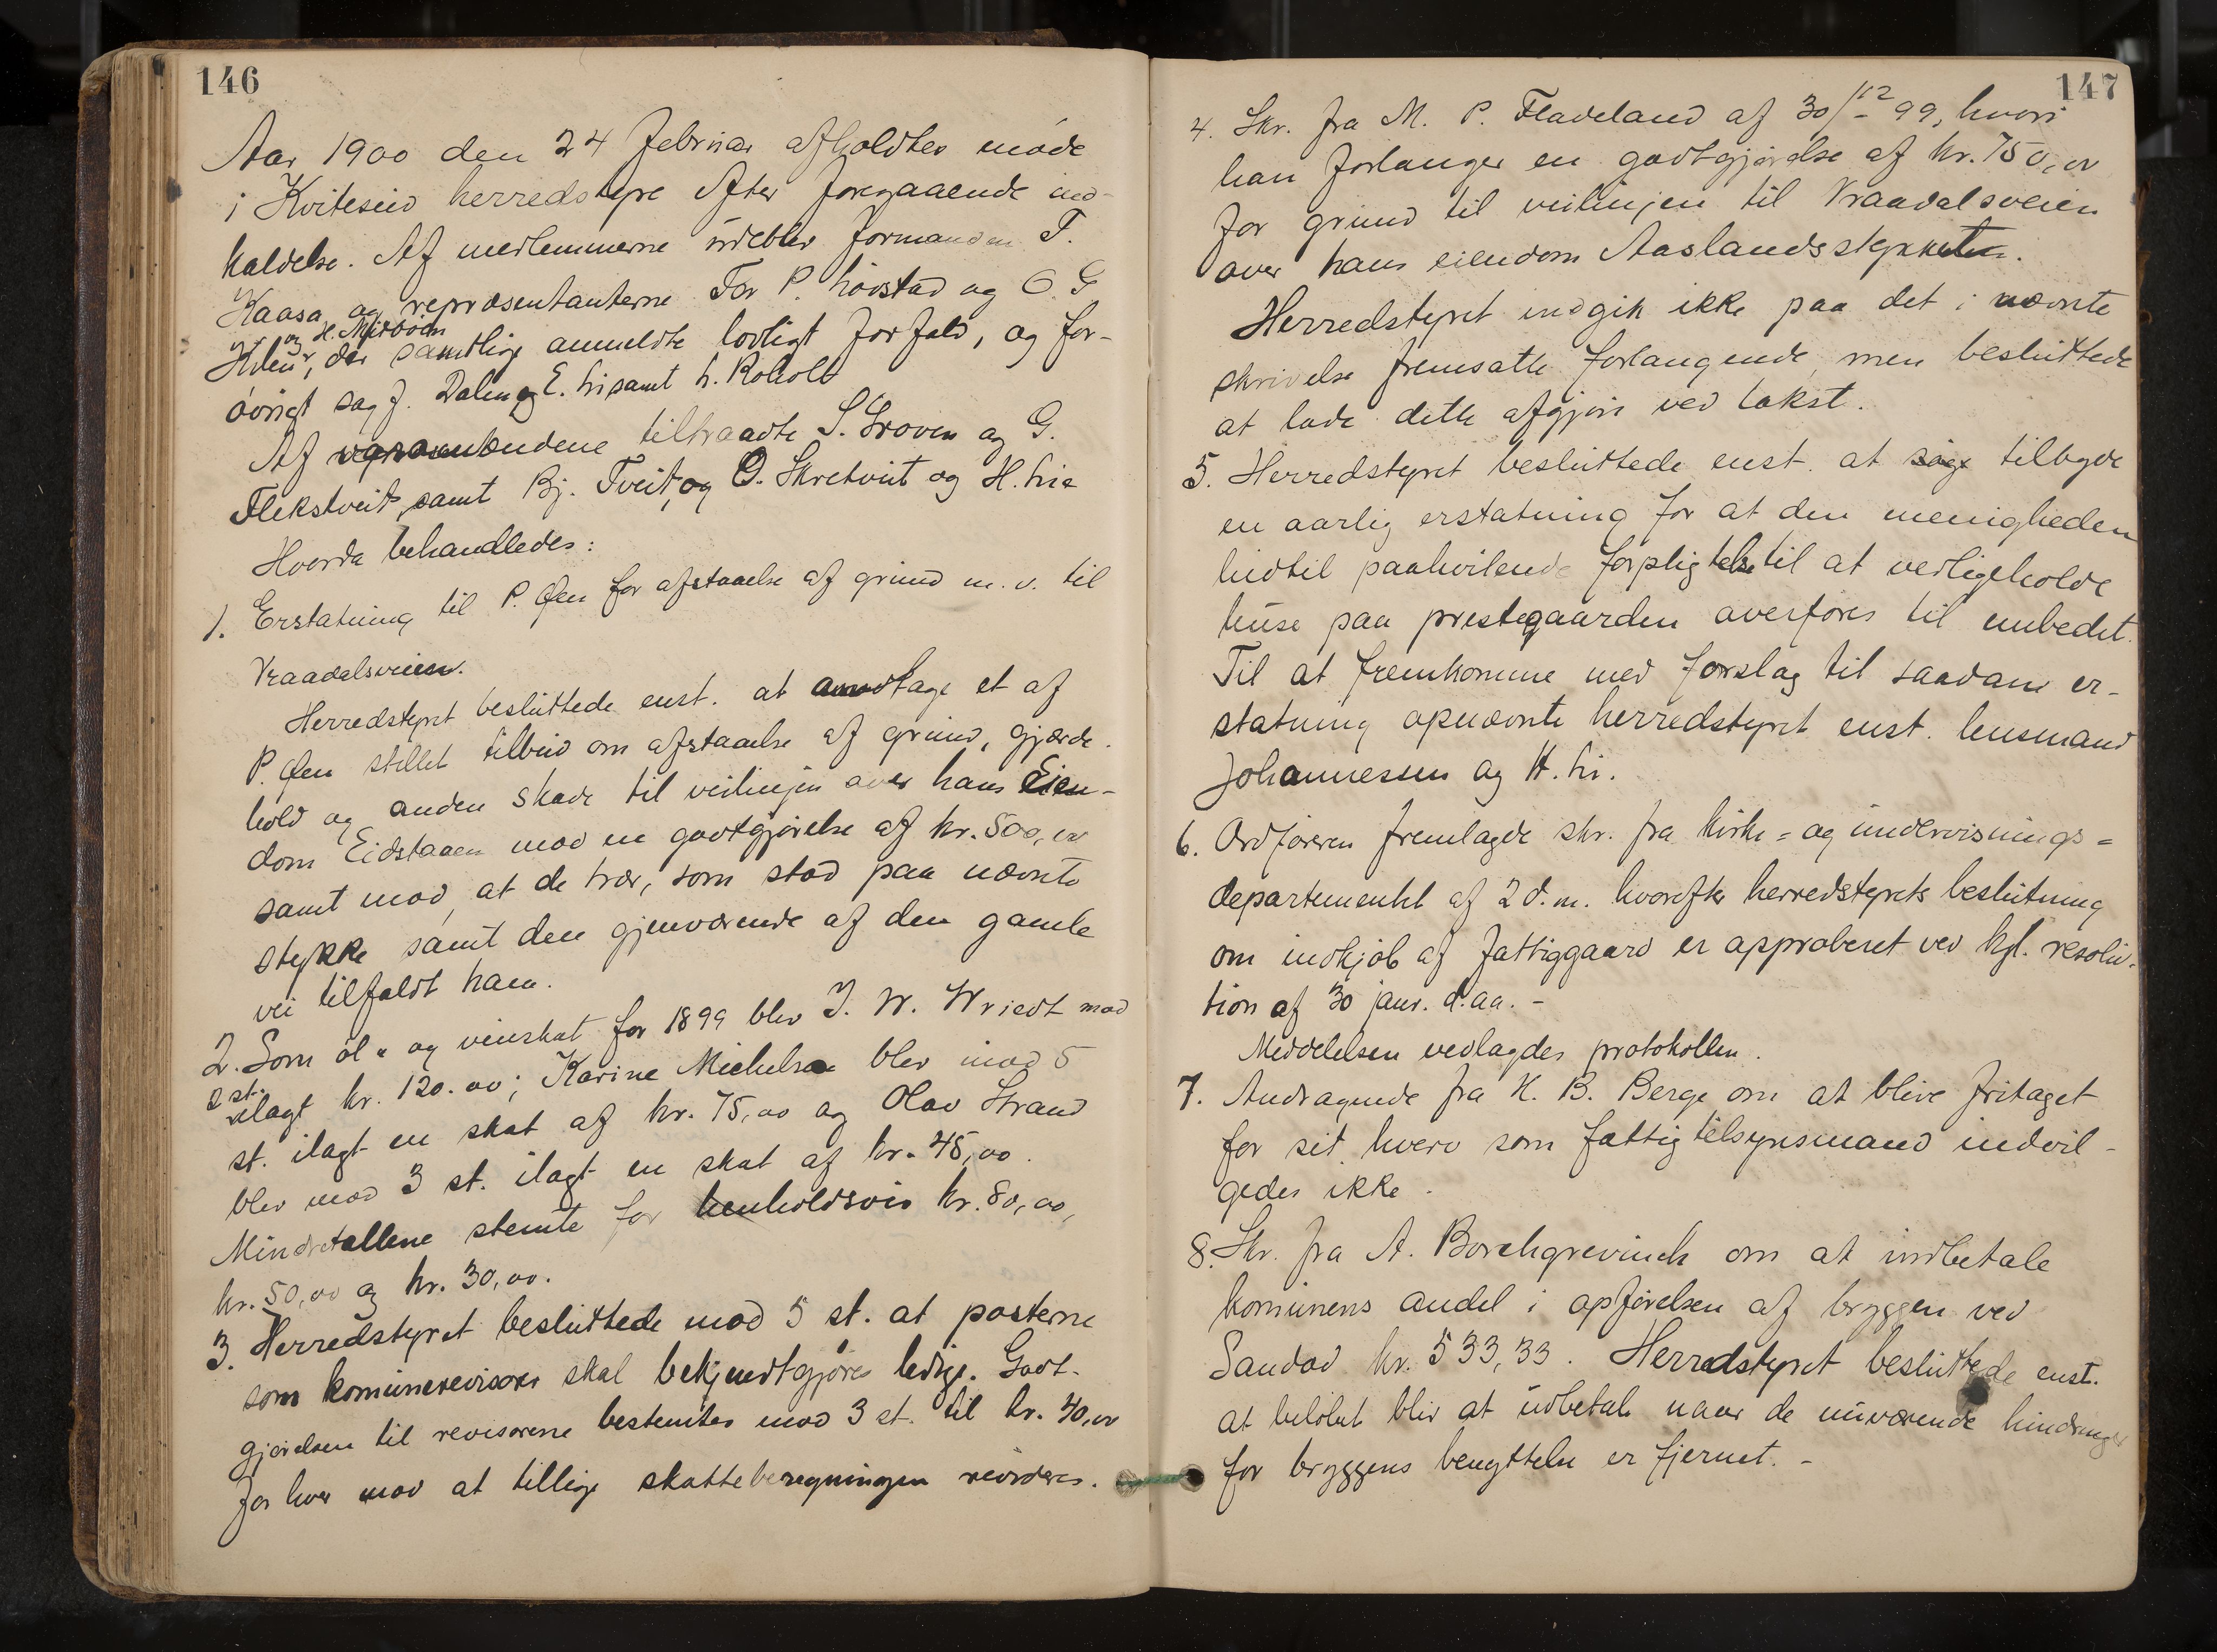 146
Aar 1900 den 24 februar afholdtes møde
i Kviteseid herredstyre efter foregaaende ind-
kaldelse. Af medlemmerne udeblev formanden T.
Kaasa og repræsentanterne Tor P. Hovstad og O. G
og H. Midbøen
Kilen, der samtlige anmeldte lovligt forfald, og for-
øvrigt sag f. Dalen og E. Li samt H. Roholt
Af varamændene tiltraadte S. Groven og G.
Flekstveit, samt Bj. Tveit, og O. Skretveit og H. Lie
Hvorda behandledes:
1. Erstatning til P. Øen for afstaaelse af grund m. v. til
Vraadalsveien.
Herredstyret besluttede enst. at modtage et af
P. Øen stillet tilbud om afstaaelse af grund, gjærde-
hold og anden skade til veilinjen over hans Eien-
dom Eidstaaen mod en godtgjørelse af kr. 500,00
samt mod, at de trær, som stod paa nævnte
stykke samt den gjenværende af den gamle
vei tilfaldt ham.
2. Som øl- og vinskat for 1899 blev J. W. Wriedt mod
2 st.
ilagt kr. 120.00; Karine Michelsen blev mod 5
st. ilagt en skat af kr. 75,00 og Olav Strand
blev mod 3 st. ilagt en skat af kr. 45,00.
Mindretallene stemte for henholdsvis kr. 80,00,
kr. 50,00 og kr. 30,00.
3. Herredstyret besluttede mod 5 st. at posterne
som komunerevisorer skal bekjendtgjøres ledige. Godt-
gjørelsen til revisorerne bestemtes mod 3 st. til kr. 40,00
for hver mod at tillige skatteberegningen revideres.
147
4. Skr. fra M. P. Fladeland af 30/12 - 99, hvori
han forlanger en godtgjørelse af kr. 750,00
for grund til veilinjen til Vraadalsveien
over hans eiendom Aaslandsstykket.
Herredstyret indgik ikke paa det i nævnte
skrivelse fremsatte forlangende, men besluttede
at lade dette afgjøre ved takst.
5. Herredstyret besluttede enst. at søge tilbyde
en aarlig erstatning for at den menigheden
hidtil paahvilende forpligtelse til at vedligeholde
huse paa prestegaarden overføres til embedet.
Til at fremkomme med forslag til saadan er-
statning opnævnte herredstyret enst. lensmand
Johannessen og H. Li.
6. Ordføreren fremlagde skr. fra kirke- og undervisnings-
departementet af 2 d. m. hvorefter herredstyrets beslutning
om indkjøb af fattiggaard er approberet ved kgl. resolu-
tion af 30 janr. d. aa. -
Meddelelsen vedlagdes protokollen.
7. Andragende fra H. B. Berge om at blive fritaget
for sit hverv som fattigtilsynsmand indvil-
gedes ikke.
8. Skr. fra A. Borchgrevinck om at indbetale
komunens andel i opførelsen af bryggen ved
Sandød kr. 533,33. Herredstyret besluttede enst.
at beløbet blir at udbetale naar de nuværende hindringer
for bryggens benyttelse er fjernet. -